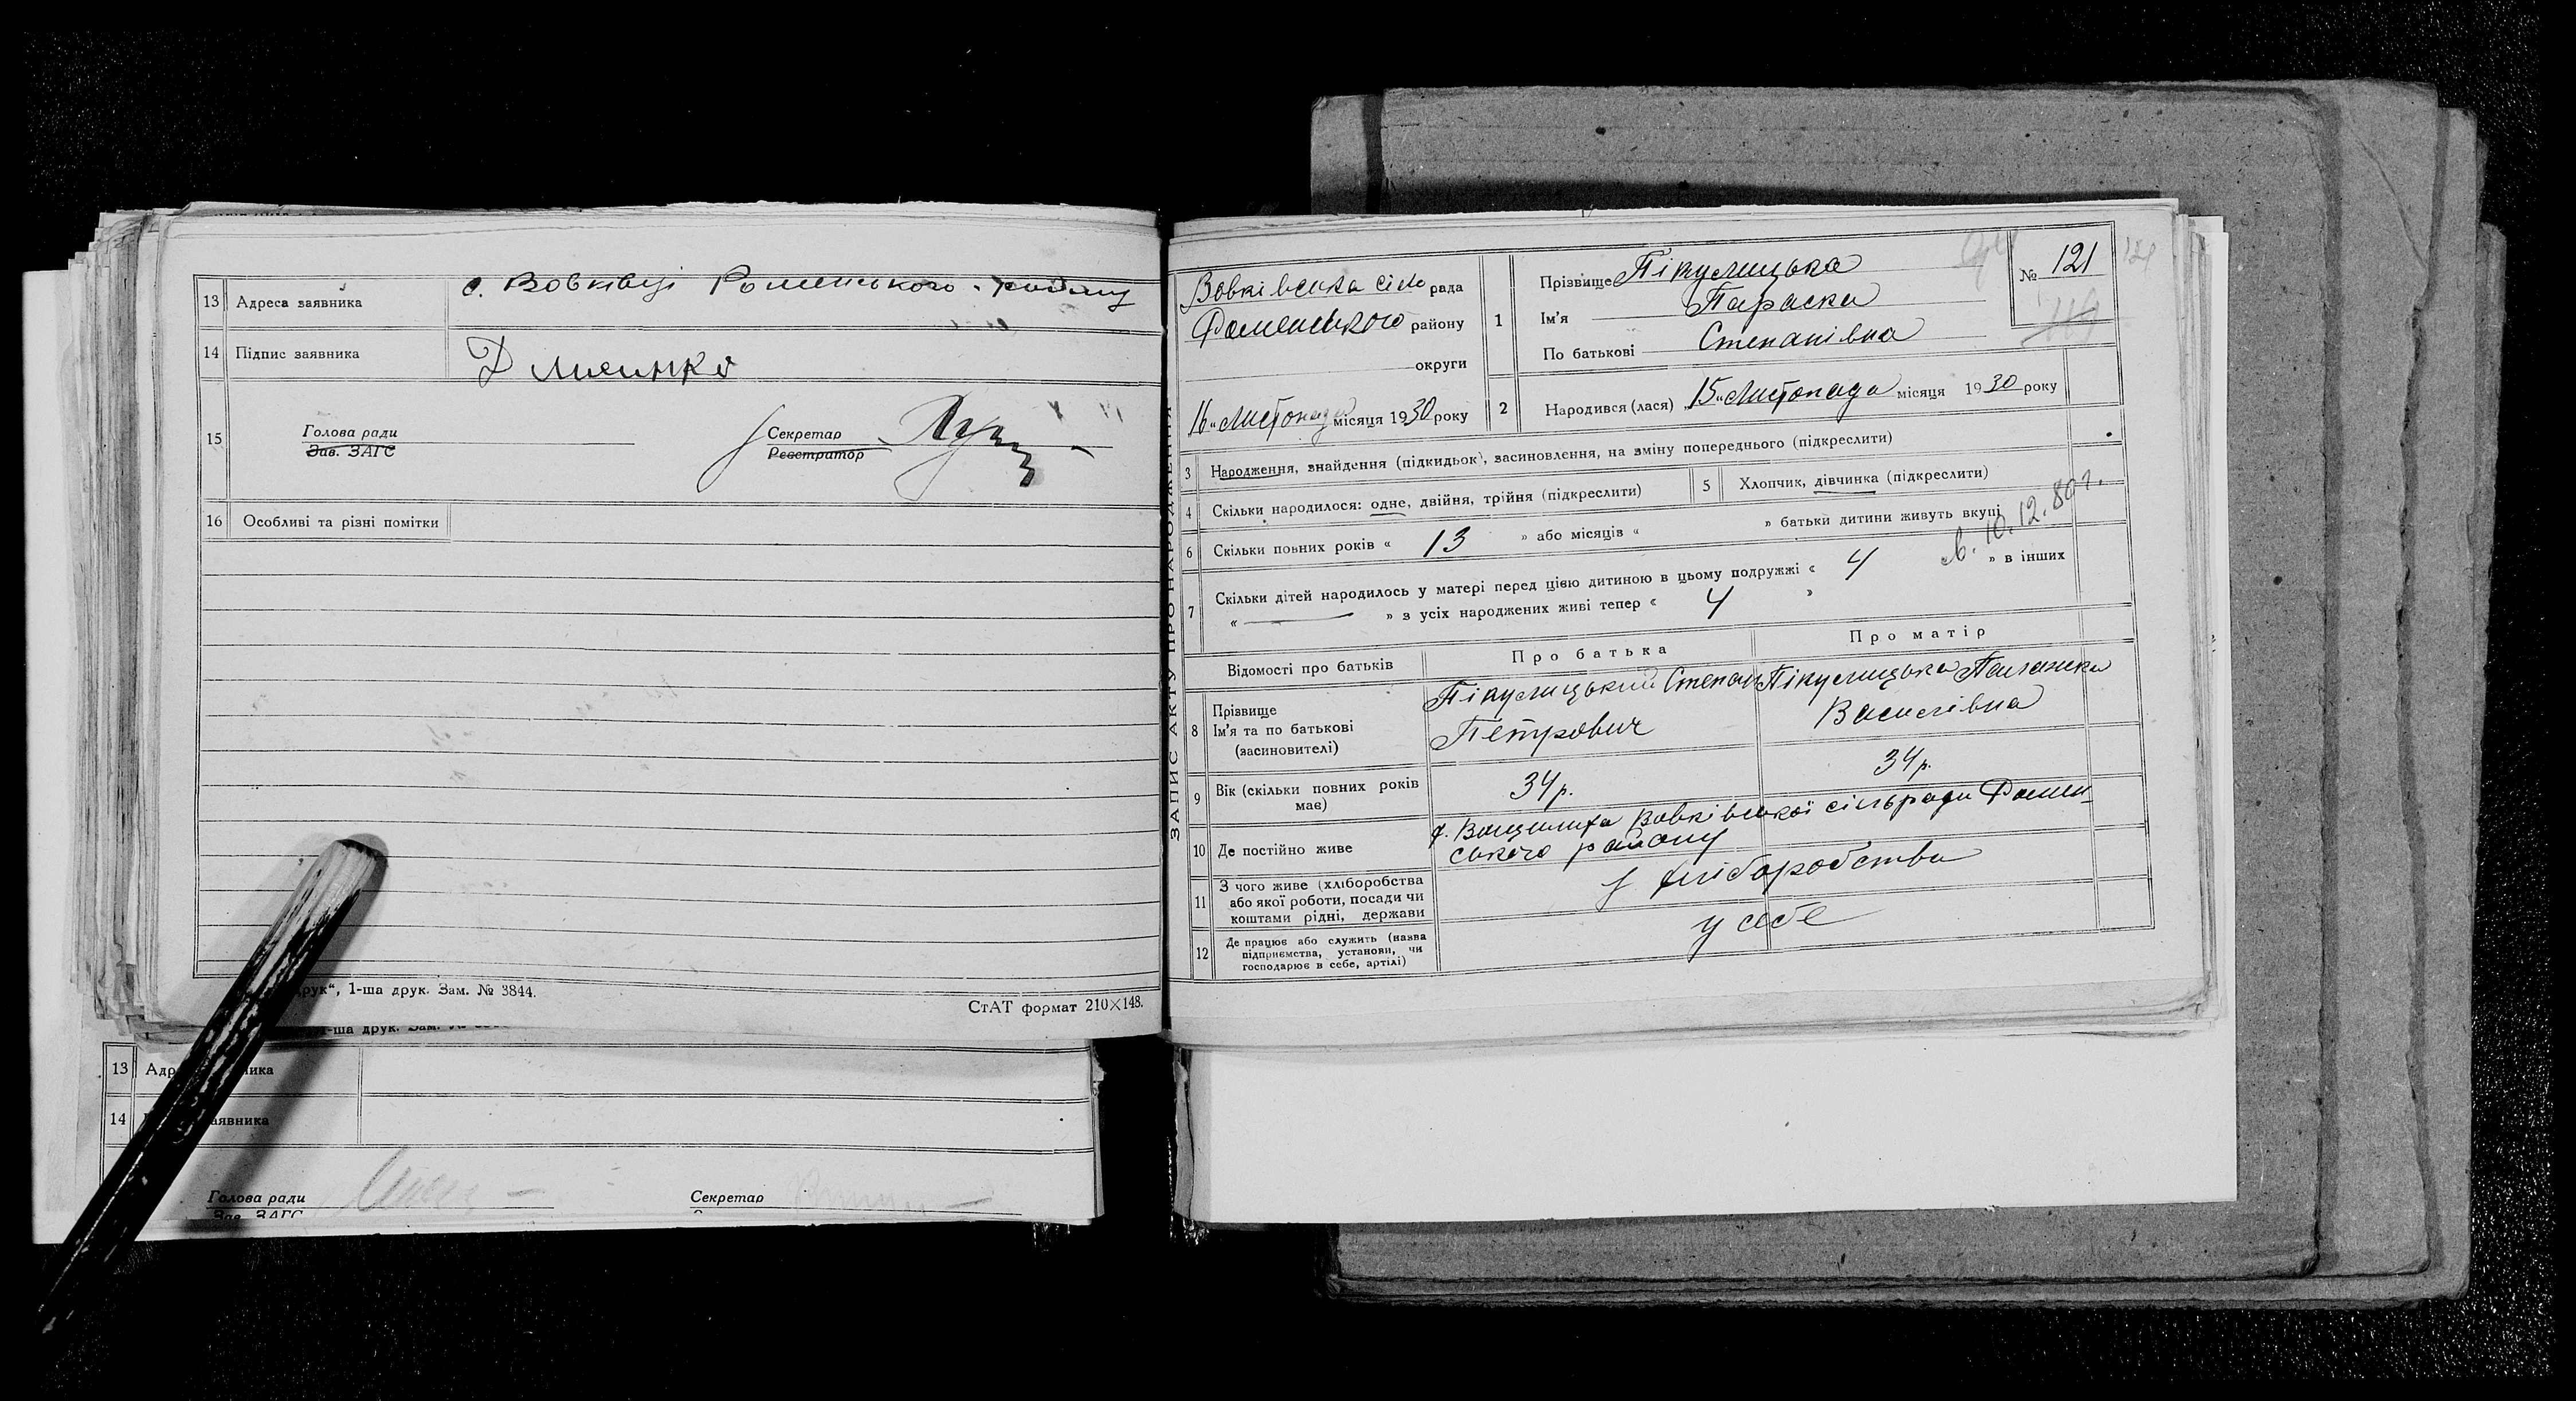 13 Адреса заявника с. Вовківці Роменського району
14 Підпис заявника Д Лисенко
15 Голова ради Секретар
Зав. ЗАГС Реєстратор
16 Особливі та різні помітки
друк“, 1-ша друк. Зам. № 3844.
СтАТ формат 210×148.
1-ша друк. Зам. №
13
14 заявника
Голова ради Секретар
Зав. ЗАГС
ЗАПИС АКТУ ПРО НАРОДЖЕННЯ
Вовківська сіль рада
Роменського району
округи
16 „ Листопада місяця 1930 року
1 Прізвище Пікулицька
Ім'я Параска
По батькові Степанівна
№ 121
121
2 Народився (лася) „15„ Листопада місяця 1930 року
3 Народження, знайдення (підкидьок), засиновлення, на зміну попереднього (підкреслити)
4 Скільки народилося: одне, двійня, трійня (підкреслити) 5 Хлопчик, дівчинка (підкреслити)
6 Скільки повних років « 13 » або місяців « » батьки дитини живуть вкупі
св. 10.12.80 г.
7 Скільки дітей народилось у матері перед цією дитиною в цьому подружжі « 4 » в інших
« — » з усіх народжених живі тепер « 4 »
Відомості про батьків Про батька Про матір
8 Прізвище Ім'я та по батькові (засиновителі)
Пікулицький Степан Петрович
Пікулицька Палажка Василівна
9 Вік (скільки повних років має) 34 р. 34 р.
10 Де постійно живе
Вовківської сільради Ромен-
ського району
11 З чого живе (хліборобства або якої роботи, посади чи коштами рідні, держави
з хліборобства
12 Де працює або служить (назва підприємства, установи, чи господарює в себе, артілі)
у себе